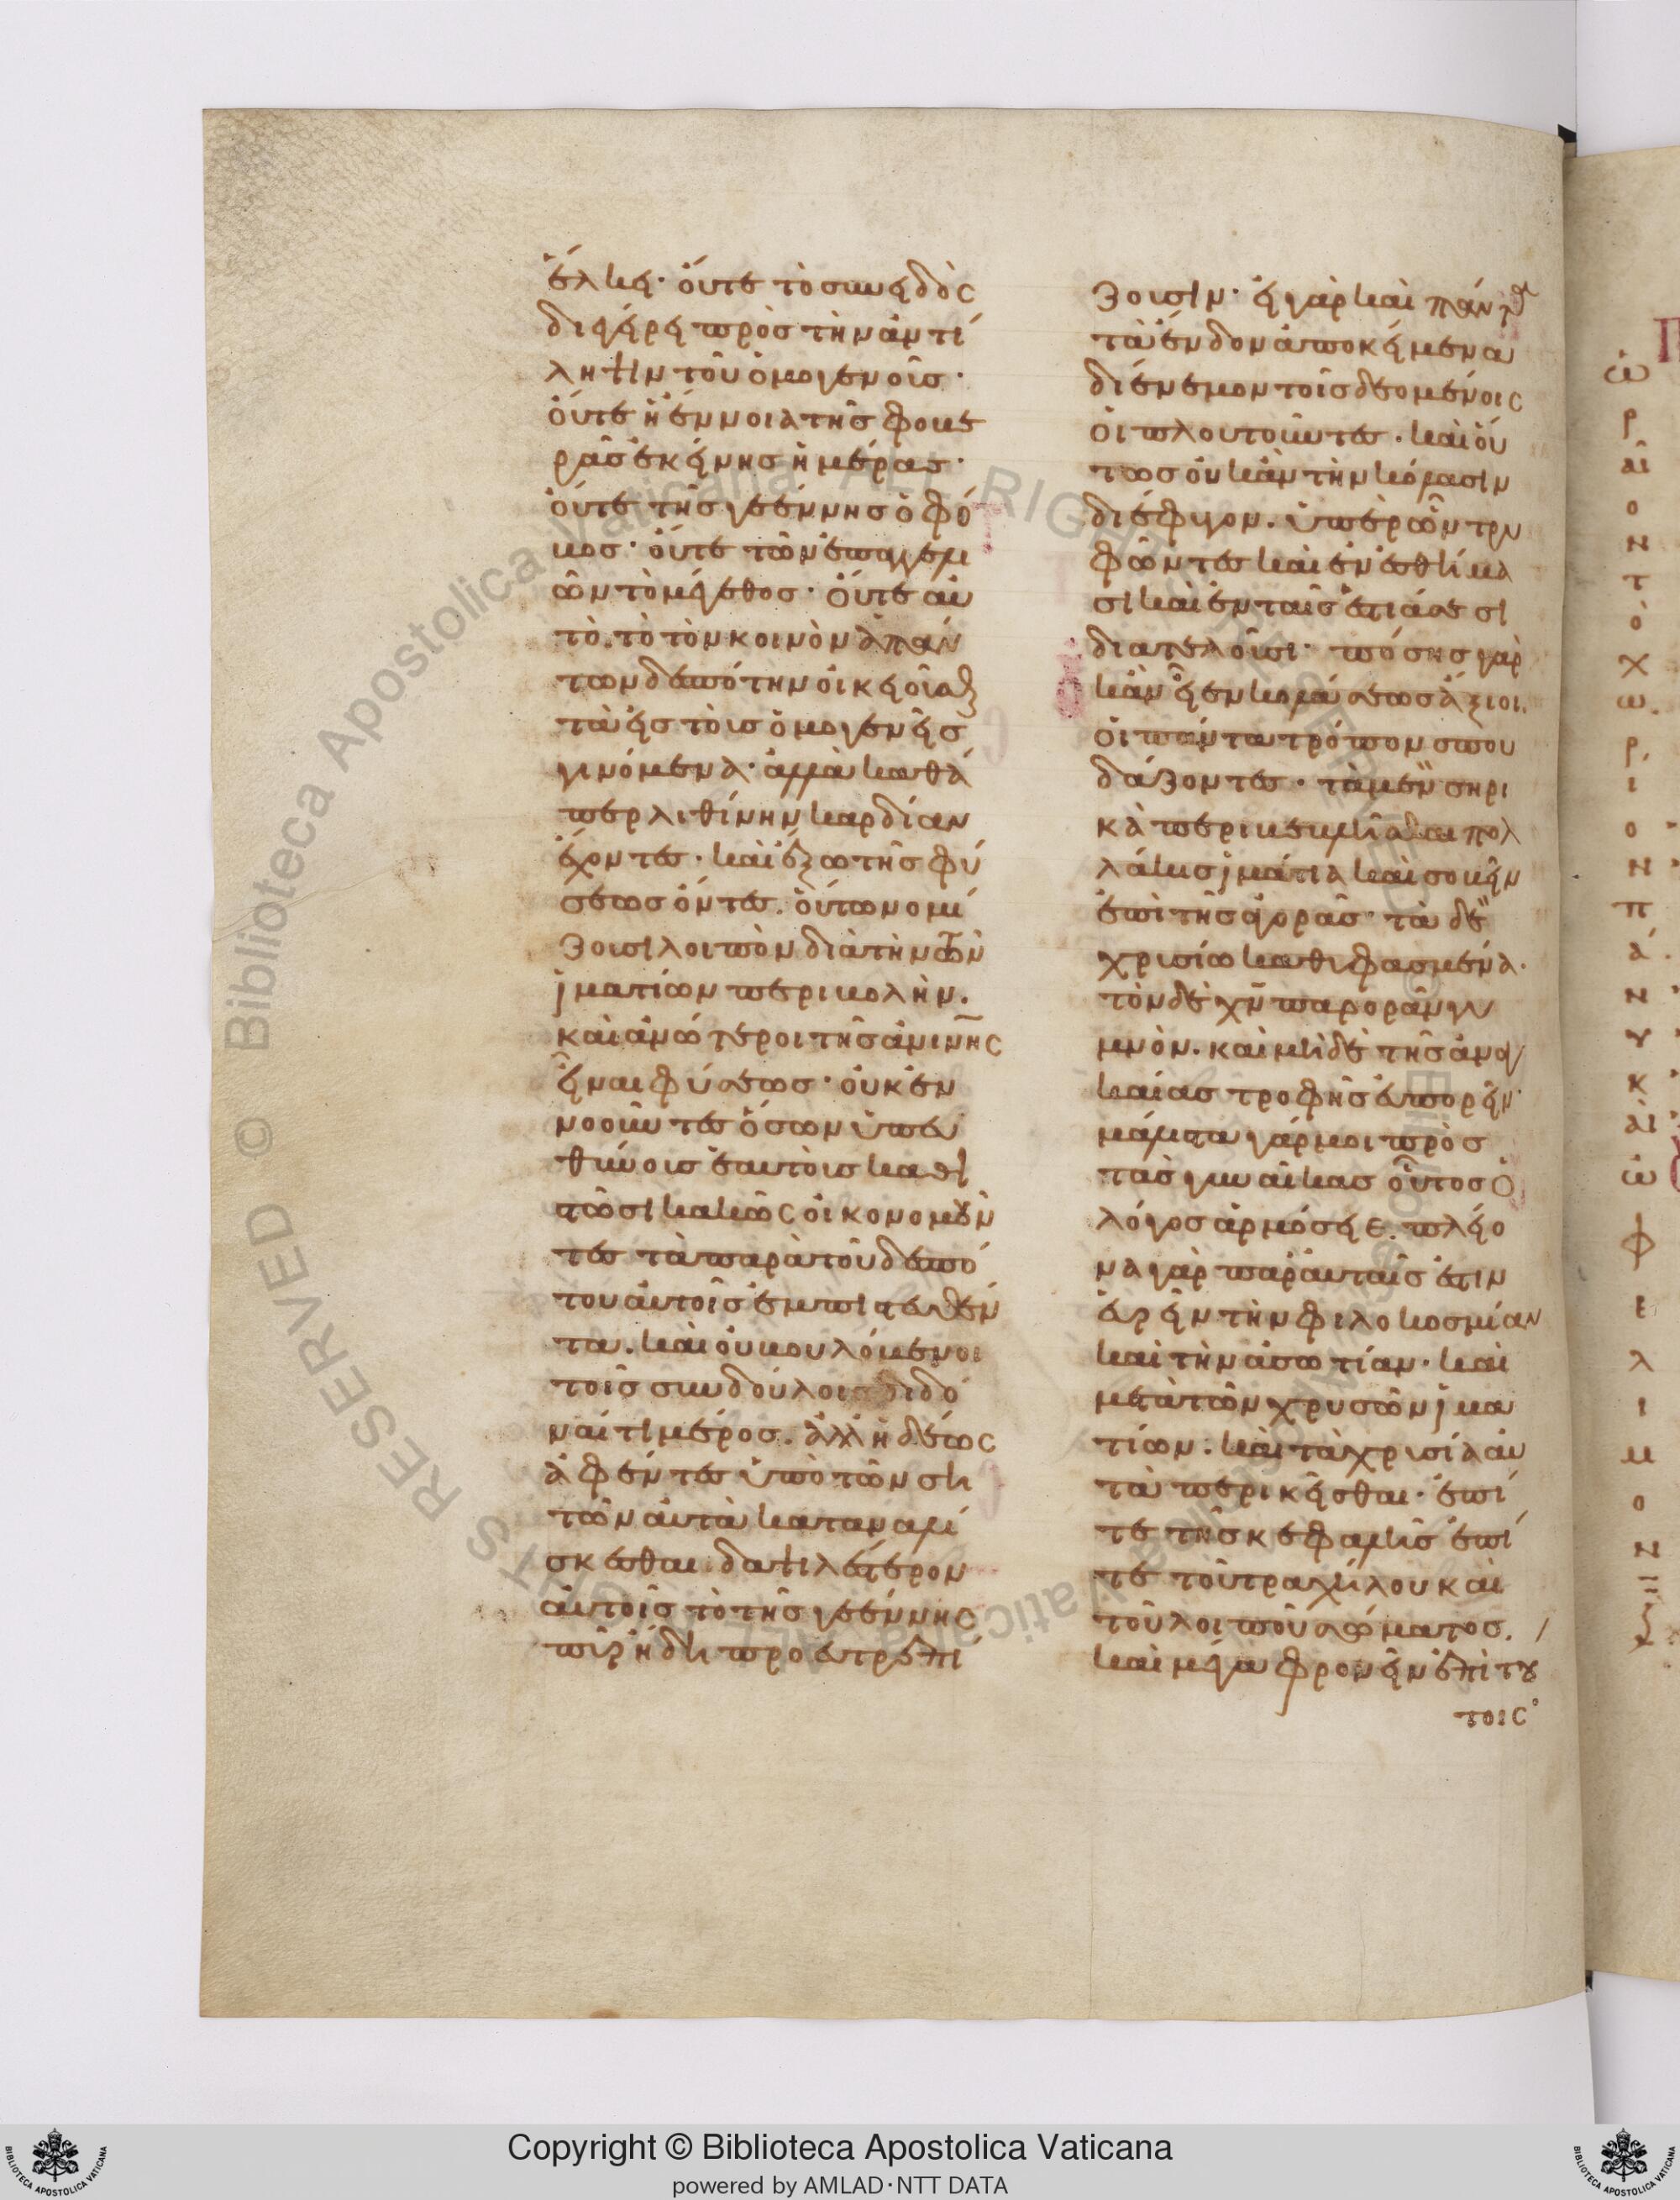 ἕλκει· οὔτε τὸ συνειδὸς
διεγείρει πρὸς τὴν ἀντί
ληψιν τοῦ ὁμογενοῦς·
οὔτε ἡ ἔννοια τῆς φοβε
ρᾶς ἐκείνης ἡμέρας·
οὔτε τῆς γεέννης ὁ φό
βος· οὔτε τῶν ἐπαγγελι
ῶν τὸ μέγεθος· οὔτε αὐ
τὸ. τὸ τὸν κοινὸν ἁπάν
των δεσπότην οἰκειοῦσθ
τὰ εἰς τοὺς ὁμογενεῖς
γινόμενα· ἀλλὰ καθά
περ λιθίνην καρδίαν
ἔχοντες· καὶ ἔξω τῆς φύ
σεως ὄντες. οὕτω νομί
ζουσι λοιπὸν διὰ τὴν τῶν
ἱματίων περιβολὴν.
καὶ ἀνώτεροι τῆς ἀνινης
εἶναι φύσεως· οὐκ ἐν
νοοῦντες ὅσων ὑπευ
θύνους ἑαυτοὺς καθι
στῶσι κακῶς οἰκονομοῦν
τες τὰ παρὰ τοῦ δεσπό
του αὐτοῖς ἐμπιστευθέν
τα. καὶ οὐ βουλόμενοι
τοῖς συνδούλοις διδό
ναί τι μέρος. ἀλλ' ἡδέως
ἀφέντες ὑπὸ τῶν ση
τῶν αὐτὰ καταναλί
σκεσθαι δαψιλέστερον
αὐτοῖς τὸ τῆς γεέννης
πῦρ ἤδη προευτρεπί
ζουσιν· εἰ γὰρ καὶ πάντα
τὰ ἔνδον ἀποκείμενα
διένεμον τοῖς δεομένοις
οἱ πλουτοῦντες. καὶ οὕ
τως οὐκ ἂν τὴν κόλασιν
διέφυγον. ὑπὲρ ὧν τρυ
φῶντες καὶ ἐν ἐσθήμα
σι καὶ ἐν ταῖς ἑστιάσεσι
διατελοῦσι· πόσης γὰρ
κἂν εἶεν κολάσεως ἄξιοι.
οἱ πάντα τρόπον σπου
δάζοντες· τὰ μὲν σηρι
κὰ περιβεβλῆσθαι πολ
λάκις ἱμάτια καὶ σοβεῖν
ἐπὶ τῆς ἀγορᾶς· τὰ δὲ
χρυσίω καθυφασμένα.
τὸν δὲ χν παρορᾶν γυ
μνὸν. καὶ μηδὲ τῆς ἀναγ
καίας τροφῆς εὐπορεῖν·
μάλιστα γάρ μοι πρὸς
τὰς γυναῖκας οὗτος ὁ
λόγος ἁρμόσειε. πλείο
να γὰρ παρ' αὐταῖς ἔστιν
εὑρεῖν τὴν φιλοκοσμίαν
καὶ τὴν ἀσωτίαν· καὶ
μετὰ τῶν χρυσῶν ἱμα
τίων. καὶ τὰ χρυσία αὐ
τὰ περικεῖσθαι· ἐπί
τε τῆς κεφαλῆς ἐπί
τε τοῦ τραχήλου καὶ
τοῦ λοιποῦ σώματος.
καὶ μέγα φρονεῖν ἐπὶ τού
τοις·